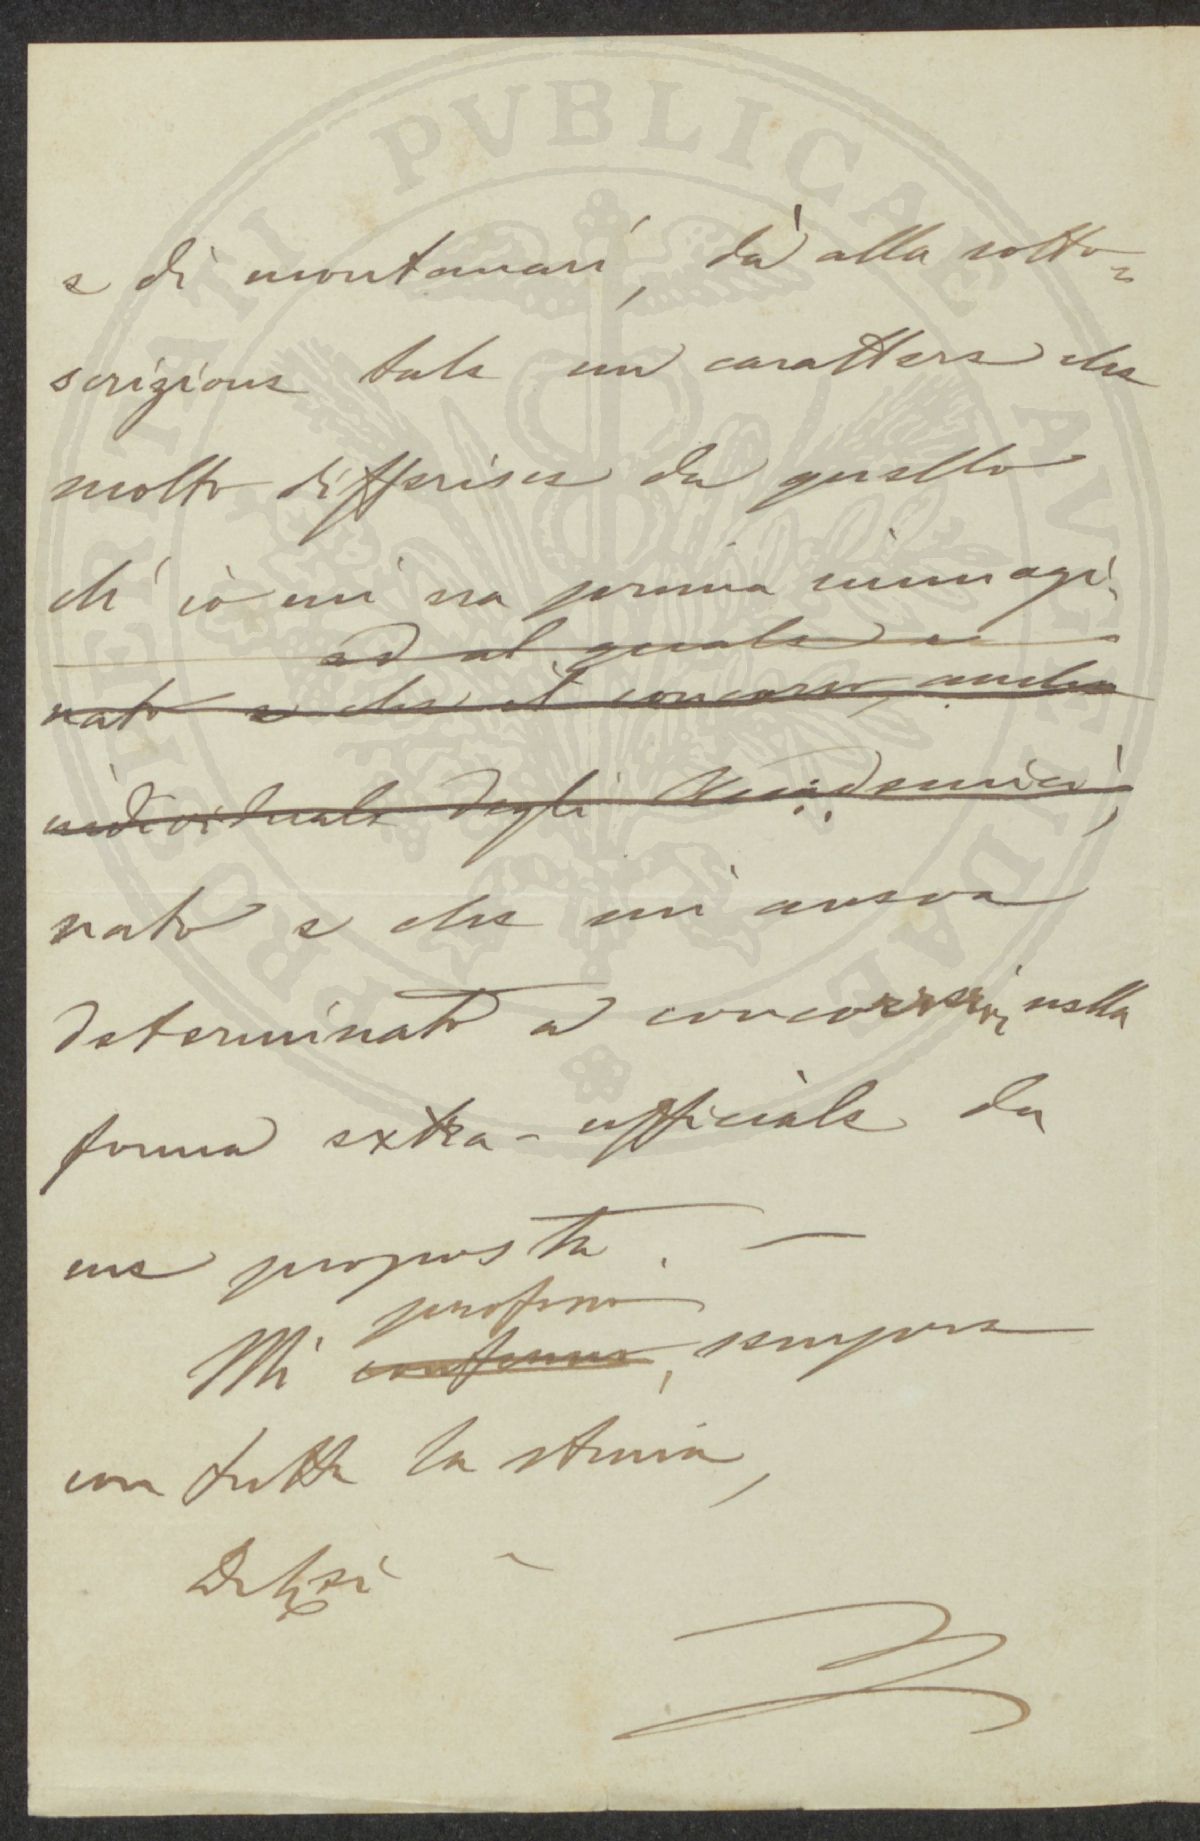 PROSPERITATI PVBLICAE AVGENDAE
e di montanari, dà alla sotto=
scrizione tale un carattere che
molto differisce da quello
ch' io mi era prima immagi-
ed al quale
nato e che il concorso, anche
individuale degli Accademici,
nato e che mi aveva
determinato a concorrervi, nella
forma extra-ufficiale da
me proposta. —
professo
Mi confermo, sempre
con tutta la stima,